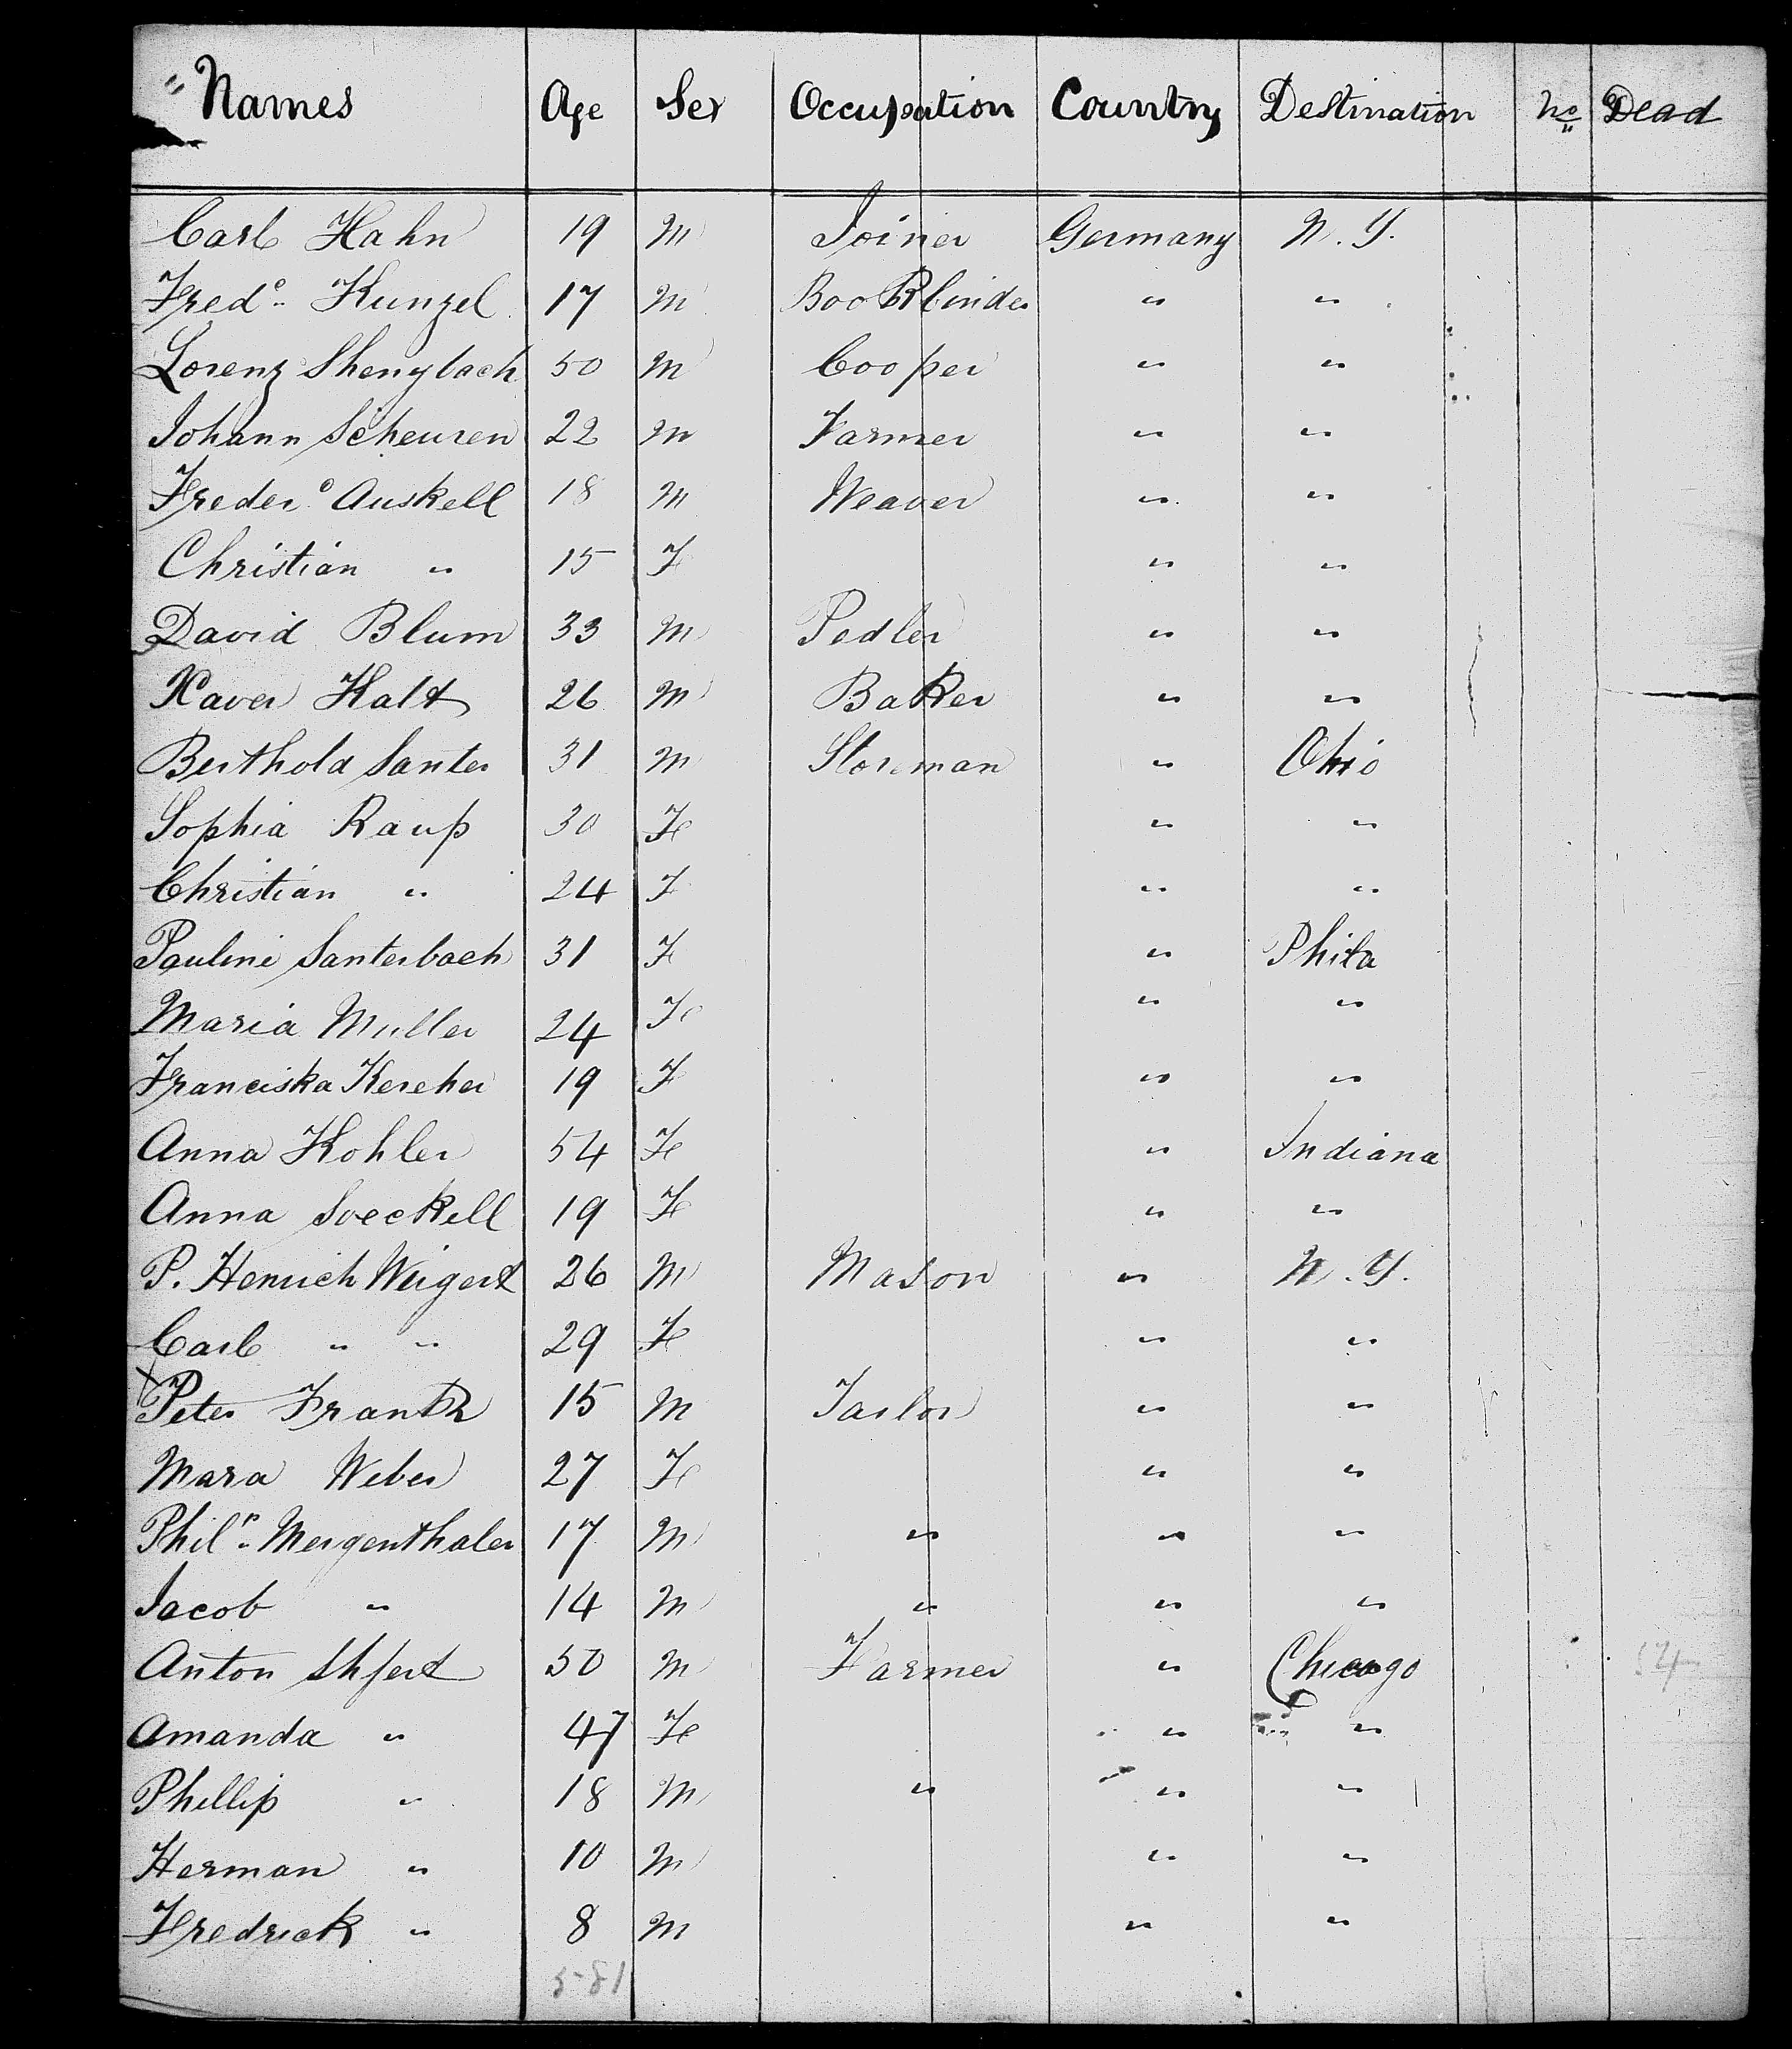 " Names Age Sex Occupation Country Destination No Dead
Carl Hahn 19 M Joiner Germany N. Y.
Fredc Kunzel 17 M Bookbinder " "
Lorenz Shengbach 50 M Cooper " "
Johann Scheuren 22 M Farmer " "
Frederc Auskell 18 M Weaver " "
Christian " 15 F " "
David Blum 33 M Pedler " "
Xaver Halt 26 M Baker " "
Berthold Santer 31 M Storeman " Ohio
Sophia Raup 30 F " "
Christian " 24 F " "
Pauline Santerbach 31 F " Phila
Maria Muller 24 F " "
Franciska Kercher 19 F " "
Anna Kohler 54 F " Indiana
Anna Soeckell 19 F " "
P. Henrich Weigert 26 M Mason " N. Y.
Carl " " 29 F " "
Peter Frank 15 M Tailor " "
Mara Weber 27 F " "
Philp Mergenthaler 17 M " " "
Jacob " 14 M " " "
Anton 50 M Farmer " Chicago 54
Amanda " 47 F " "
Phillip " 18 M " " "
Herman " 10 M " "
Fredrick " 8 M " "
581